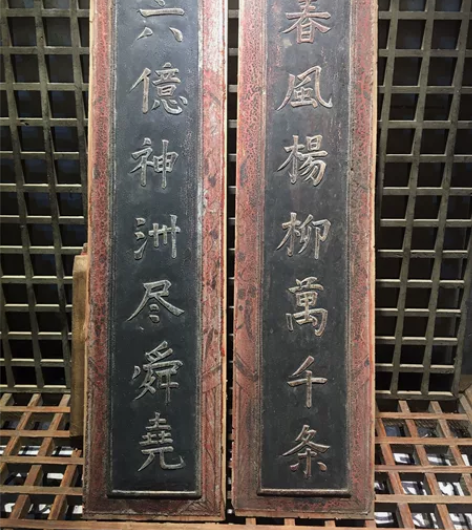 春風楊柳萬千条
六億神洲尽舜堯